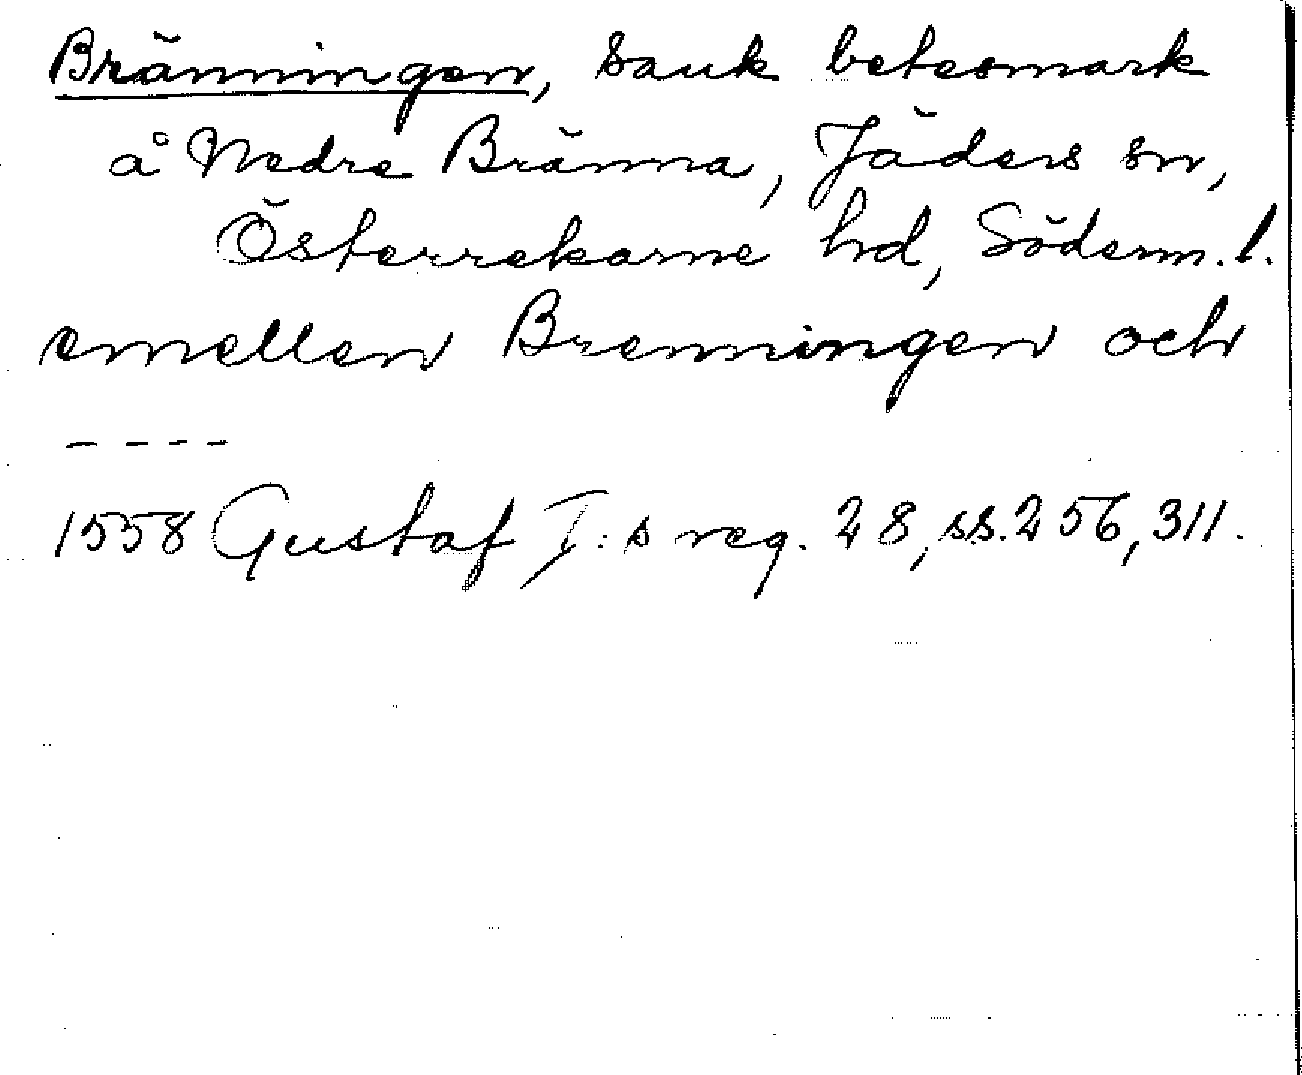 Bränningen, sank betesmark
å Nedre Bränna, Jäders sn,
Österrekarne hd, Söderm. l.
emellen Brenningen och
----
1558 Gustaf I:s reg. 28, ss. 256, 311.